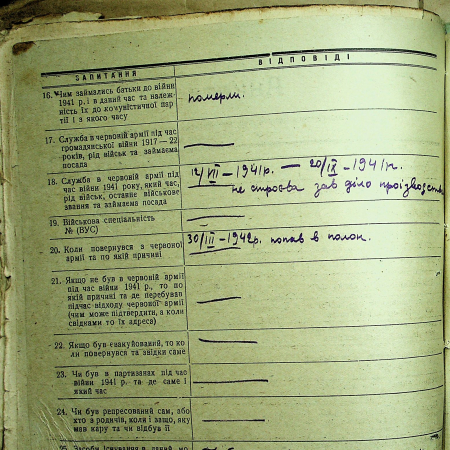 ЗАПИТАННЯ
ВІДПОВІДІ
16. Чим займались батьки до війни
1941 р. і в даний час та належ-
ність їх до комуністичної пар-
тії і з якого часу
померли.
17. Служба в червоній армії під час
громадянської війни 1917 — 22
років, рід військ та займаема
посада
18. Служба в червоній армії під
час війни 1941 року, який час,
рід військ, останне військове
звання та займаема посада
12/VII — 1941 р. — 20/IX — 1941 р.
не строєва зав діло производства
19. Військова спеціальність
№ (ВУС)
20. Коли повернувся з червоної
армії та по якій причині
30/III — 1942 р. попав в полон.
21. Якщо не був в червоній армії
під час війни 1941 р., то по
якій причині та де перебував
підчас відходу червоної армії
(чим може підтвердити, а коли
свідками то їх адреса)
22. Якщо був евакуйований, то ко-
ли повернувся та звідки саме
23. Чи був в партизанах під час
війни 1941 р. та де саме і
який час
24. Чи був репресований сам, або
хто з родичів, коли і защо, яку
мав кару та чи відбув її
25. Засоби існування в даний